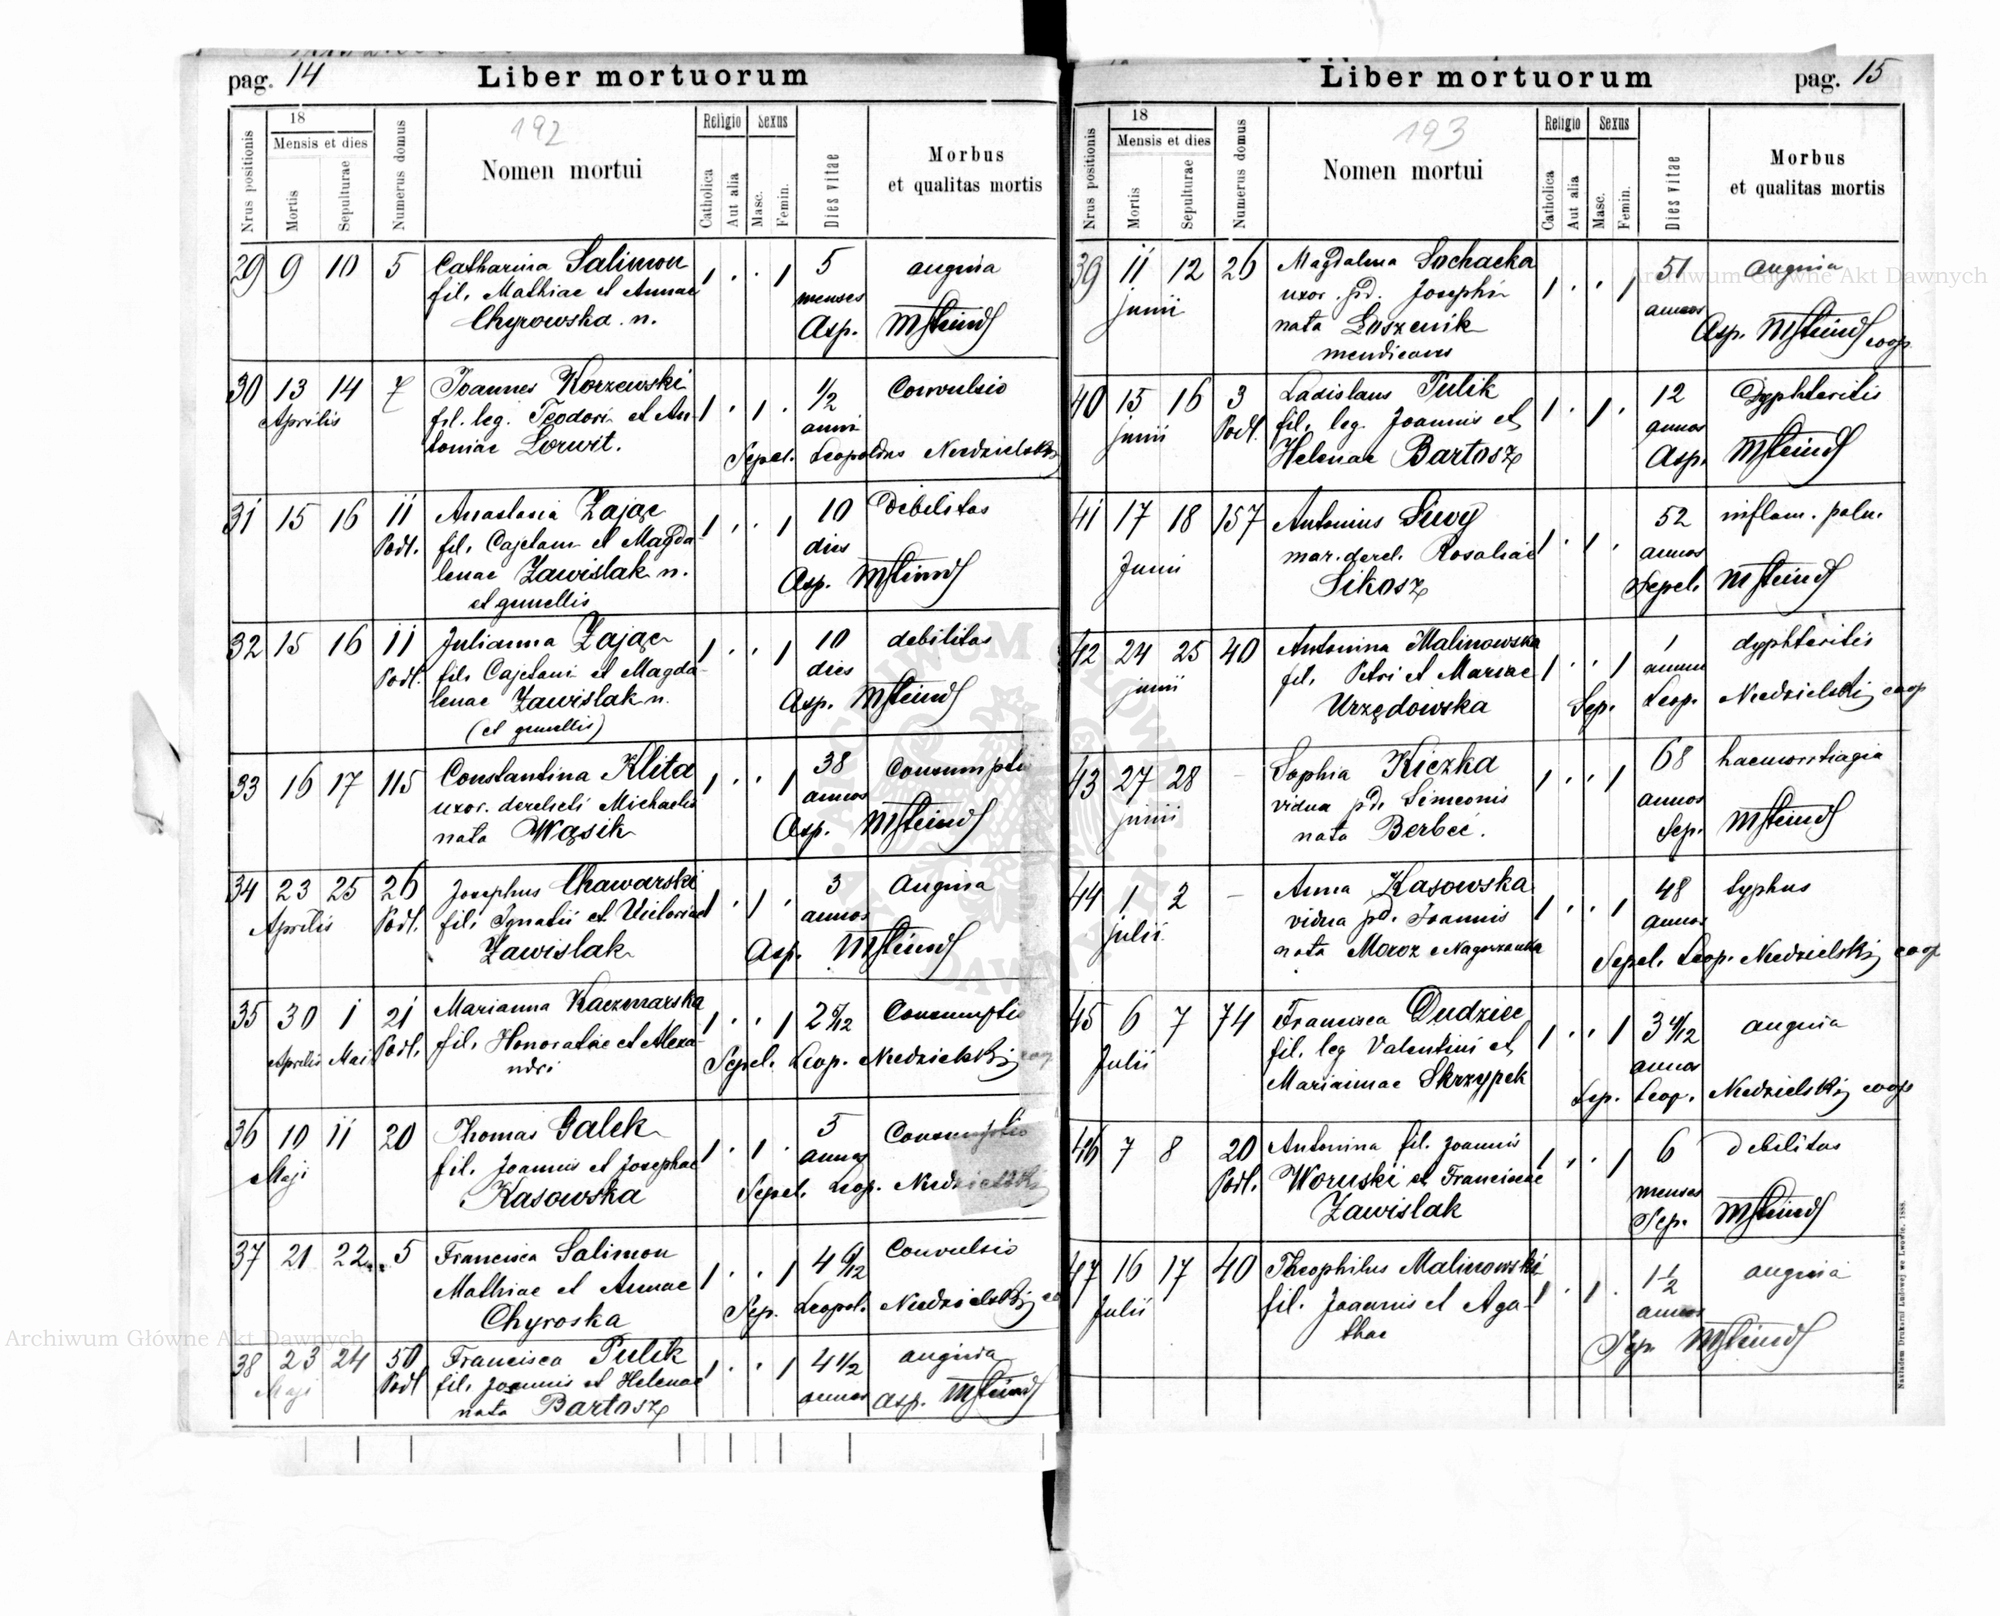 pag. 14
Liber mortuorum
192
Nrus positionis
18
Mensis et dies
Mortis
Sepulturae
Numerus domus
Nomen mortui
Religio
Catholica
Aut alia
Sexus
Masc.
Femin.
Dies vitae
Morbus
et qualitas mortis
29 9 10 5 Catharina Salimon 1 . . 1 5 angina
fil. Mathiae et Annae menses
Chyrowska n. Asp.
30 13 14 7 Joannes Korzewski 1 . 1 . 1/2 Convulsio
Aprilis fil. leg. Teodori et An- anni
toniae Lorwit. Sepel. Leopoldus Niedzielski
31 15 16 11 Anastasia Zając 1 . . 1 10 Debilitas
Podl. fil. Cajetani et Magda- dies
lenae Zawislak n. Asp.
et gemellis
32 15 16 11 Julianna Zając 1 . . 1 10 debilitas
Podl. fil. Cajetani et Magda- dies
lenae Zawislak n. Asp.
(et gemellis)
33 16 17 115 Constantina Klita 1 . . 1 38 Consumptio
uxor. derelicti Michaelis annos
nata Wąsik Asp.
34 23 25 26 Josephus Chawarski 1 . 1 . 3 Angina
Aprilis Podl. fil. Ignatii et Victoriae annos
Zawislak Asp.
35 30 1 21 Marianna Kaczmarska 1 . . 1 2 5/12 Consumptio
Aprilis Mai Podl. fil. Honoratae et Alexa-
ndri Sepel. Leop. Niedzielski coop
36 10 11 20 Thomas Galek 1 . 1 . 5 Consumptio
Maji fil. Joannis et Josephae annos
Kasowska Sepel. Leop. Niedzielski
37 21 22 5 Francisca Salimon 1 . . 1 4 6/12 Convulsio
Mathiae et Annae
Chyroska Sep. Leopol. Niedzielski co
38 23 24 50 Francisca Pulik 1 . . 1 4 1/2 angina
Maji Podl fil. Joannis et Helenae annos Asp.
nata Bartosz
Liber mortuorum
pag. 15
193
Nrus positionis
18
Mensis et dies
Mortis
Sepulturae
Numerus domus
Nomen mortui
Religio
Catholica
Aut alia
Sexus
Masc.
Femin.
Dies vitae
Morbus
et qualitas mortis
39 11 12 26 Magdalena Sochacka 1 . . 1 51 angina
junii uxor. pd. Josephi annos
nata Loszenik Asp. coop
mendicans
40 15 16 3 Ladislaus Pulik 1 . 1 . 12 Dyphteritis
junii Podl. fil. leg. Joannis et annos
Helenae Bartosz Asp.
41 17 18 157 Antonius Siwy 1 . 1 . 52 inflam. pulm.
Junii mar. derel. Rosaliae annos
Sikosz Sepel.
42 24 25 40 Antonina Malinowska 1 . . 1 1 dyphteritis
junii fil. Petri et Mariae annum
Urzędowska Sep. Leop. Niedzielski coop
43 27 28 – Sophia Kiczka 1 . . 1 68 haemorrhagia
junii vidua pd. Simeonis annos
nata Berbeć. Sep.
44 1 2 – Anna Kasowska 1 . . 1 48 typhus
julii vidua pd. Joannis annos
nata Moroz Nagorzanka Sepel. Leop. Niedzielski coop
45 6 7 74 Francisca Dudziec 1 . . 1 3 4/12 angina
Julii fil. leg Valentini et annos
Mariannae Skrzypek Sep. Leop. Niedzielski coop
46 7 8 20 Antonina fil. Joannis 1 . . 1 6 Debilitas
Podl. Woruski et Franciscae menses
Zawislak Sep.
47 16 17 40 Theophilus Malinowski 1 . 1 . 1 1/2 angina
Julii fil. Joannis et Aga- annos
thae Sep
Nakładem Drukarni Ludowej we Lwowie. 1888.
Archiwum Główne Akt Dawnych
Archiwum Główne Akt Dawnych
ARCHIWUM GŁÓWNE AKT DAWNYCH